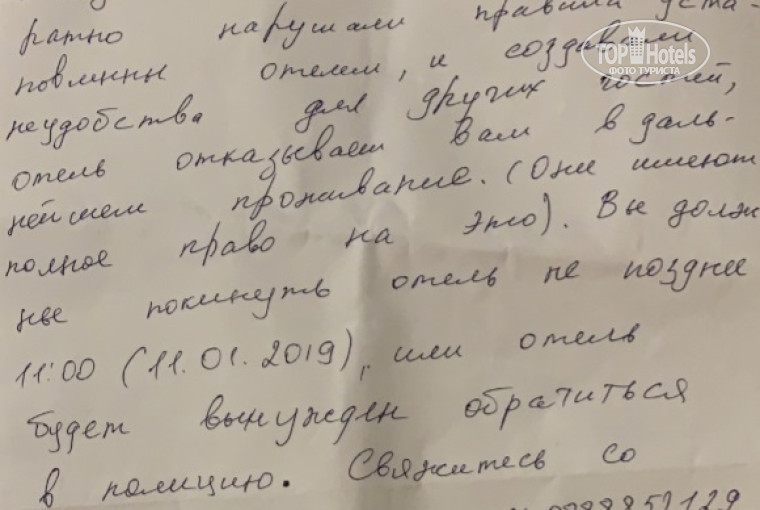 ратно нарушали правила уста-
новленны отелем, и создавали
неудобства для других гостей,
отель отказывает Вам в даль-
нейшем проживание. (Они имеют
полное право на это). Вы долж
ны покинуть отель не позднее
11:00 (11.01.2019), или отель
будет вынужден обратиться
в полицию. Свяжитесь со
TOP Hotels
ФОТО ТУРИСТА